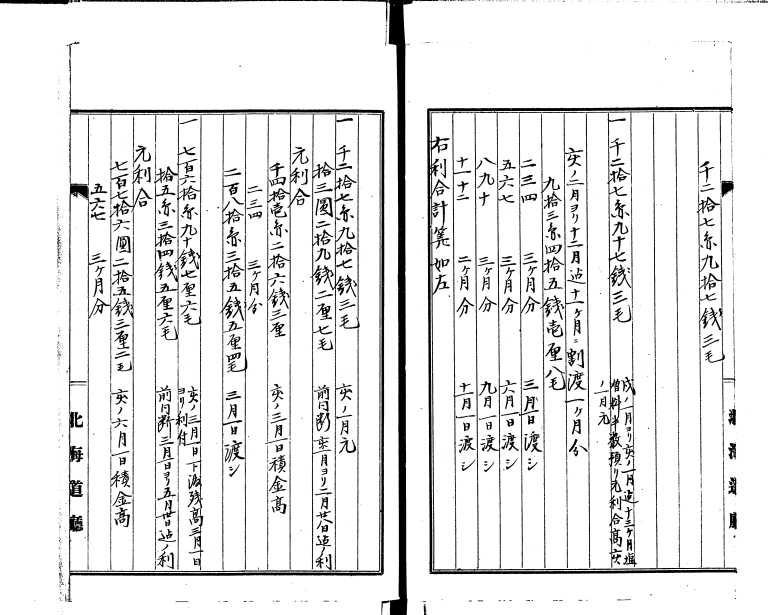 千二拾七円九拾七銭三毛
一 千二拾七円九十七銭三毛
戌ノ一月ヨリ亥ノ一月迄十三ヶ月塩
増料半数預リ元利合高亥
ノ一月元
亥ノ二月ヨリ十二月迄十一ヶ月ニ割渡一ヶ月分
九拾三円四拾五銭壱厘八毛
二三四 三ヶ月分 三月一日渡シ
五六七 三ヶ月分 六月一日渡シ
八九十 三ヶ月分 九月一日渡シ
十一十二 二ヶ月分 十月一日渡シ
右利合計算如左
北海道廳
一 千二拾七円九拾七銭三毛 亥ノ一月元
拾三圓二拾九銭二厘七毛
元利合
千四拾壱円二拾六銭三厘 亥ノ三月一日積金高
二三四 三ヶ月分
二百八拾円三拾五銭五厘四毛 三月一日渡シ
一 七百六拾円九十銭七厘六毛
亥ノ三月一日下渡残高三月一日
ヨリ利付
拾五円三拾四銭五厘六毛
元利合
七百七拾六圓二拾五銭三厘二毛 亥ノ六月一日積金高
五六七 三ヶ月分
北海道廳